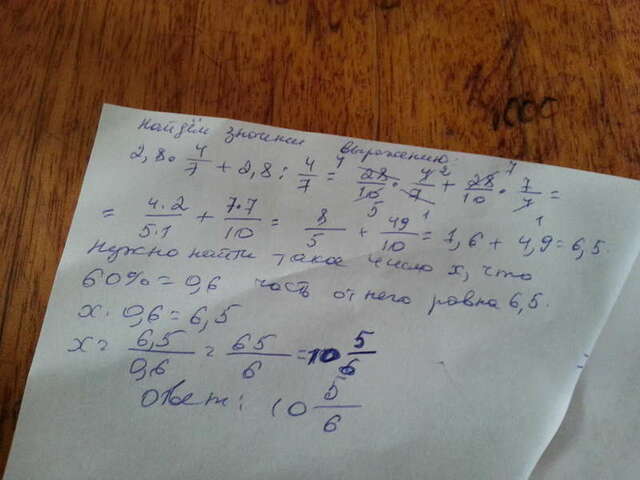 Найдём значении выражению:
2,8 · 4/7 + 2,8 : 4/7 = 28/10 · 4/7 + 28/10 · 7/4 =
= 4·2/5·1 + 7·7/10 = 8/5 + 49/10 = 1,6 + 4,9 = 6,5.
Нужно найти такое число x, что
60% = 0,6 часть от него равна 6,5.
x · 0,6 = 6,5
x = 6,5/0,6 = 65/6 = 10 5/6
Ответ: 10 5/6